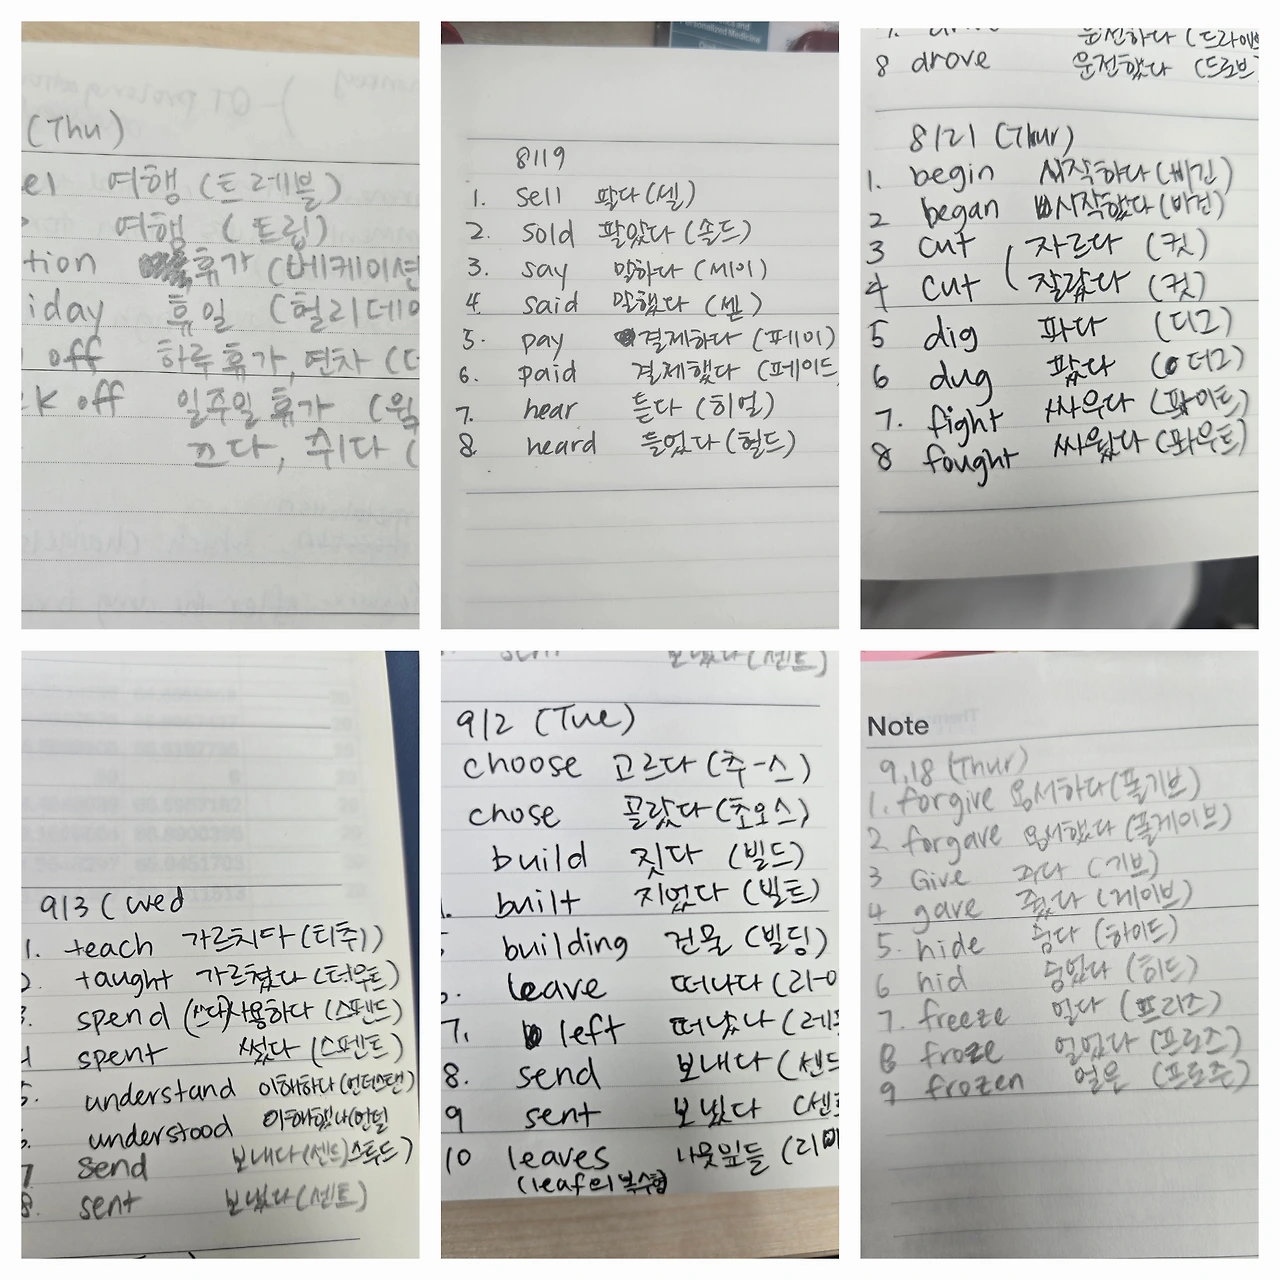 (Thu)
el 여행 (트레블)
여행 (트립)
tion 휴가 (베케이션
iday 휴일 (헐리데이
off 하루휴가, 연차 (
k off 일주일 휴가 (윜
쓰다, 쉬다 (
8/19
1. sell 팔다 (셀)
2. sold 팔았다 (솔드)
3. say 말하다 (세이)
4. said 말했다 (쎋)
5. pay 결제하다 (페이)
6. paid 결제했다 (페이드
7. hear 듣다 (히얼)
8. heard 들었다 (헐드)
운전하다 (드라이브
8 drove 운전했다 (드로브
8/21 (Thur)
1. begin 시작하다 (비긴)
2 began 시작했다 (비건)
3 cut 자르다 (컷)
4 cut 잘랐다 (컷)
5 dig 파다 (디그)
6 dug 팠다 (더그)
7. fight 싸우다 (퐈이트)
8 fought 싸웠다 (퐈우트)
9/3 (wed
1. teach 가르치다 (티취)
2. taught 가르쳤다 (터우트)
3. spend (쓰다)사용하다 (스펜드)
4 spent 썼다 (스펜트)
5. understand 이해하다 (언더스탠)
6. understood 이해했다 (언덜
스투드)
7 send 보내다 (센드)
8. sent 보냈다 (센트)
sent 보냈다 (센트)
9/2 (Tue)
choose 고르다 (추-스)
chose 골랐다 (초오스)
build 짓다 (빌드)
built 지었다 (빌트)
building 건물 (빌딩)
leave 떠나다 (리
7. left 떠났나 (레
8. send 보내다 (센드
9 sent 보냈다 (센트
10 leaves 나뭇잎들 (리
(leaf의 복수형
Note
9.18 (Thur)
1. forgive 용서하다 (폴기브)
2 forgave 용서했다 (폴게이브)
3 Give 주다 (기브)
4 gave 줬다 (게이브)
5. hide 숨다 (하이드)
6 hid 숨었다 (히드)
7. freeze 얼다 (프리즈)
8 froze 얼었다 (프로즈)
9 frozen 얼은 (프로즌)